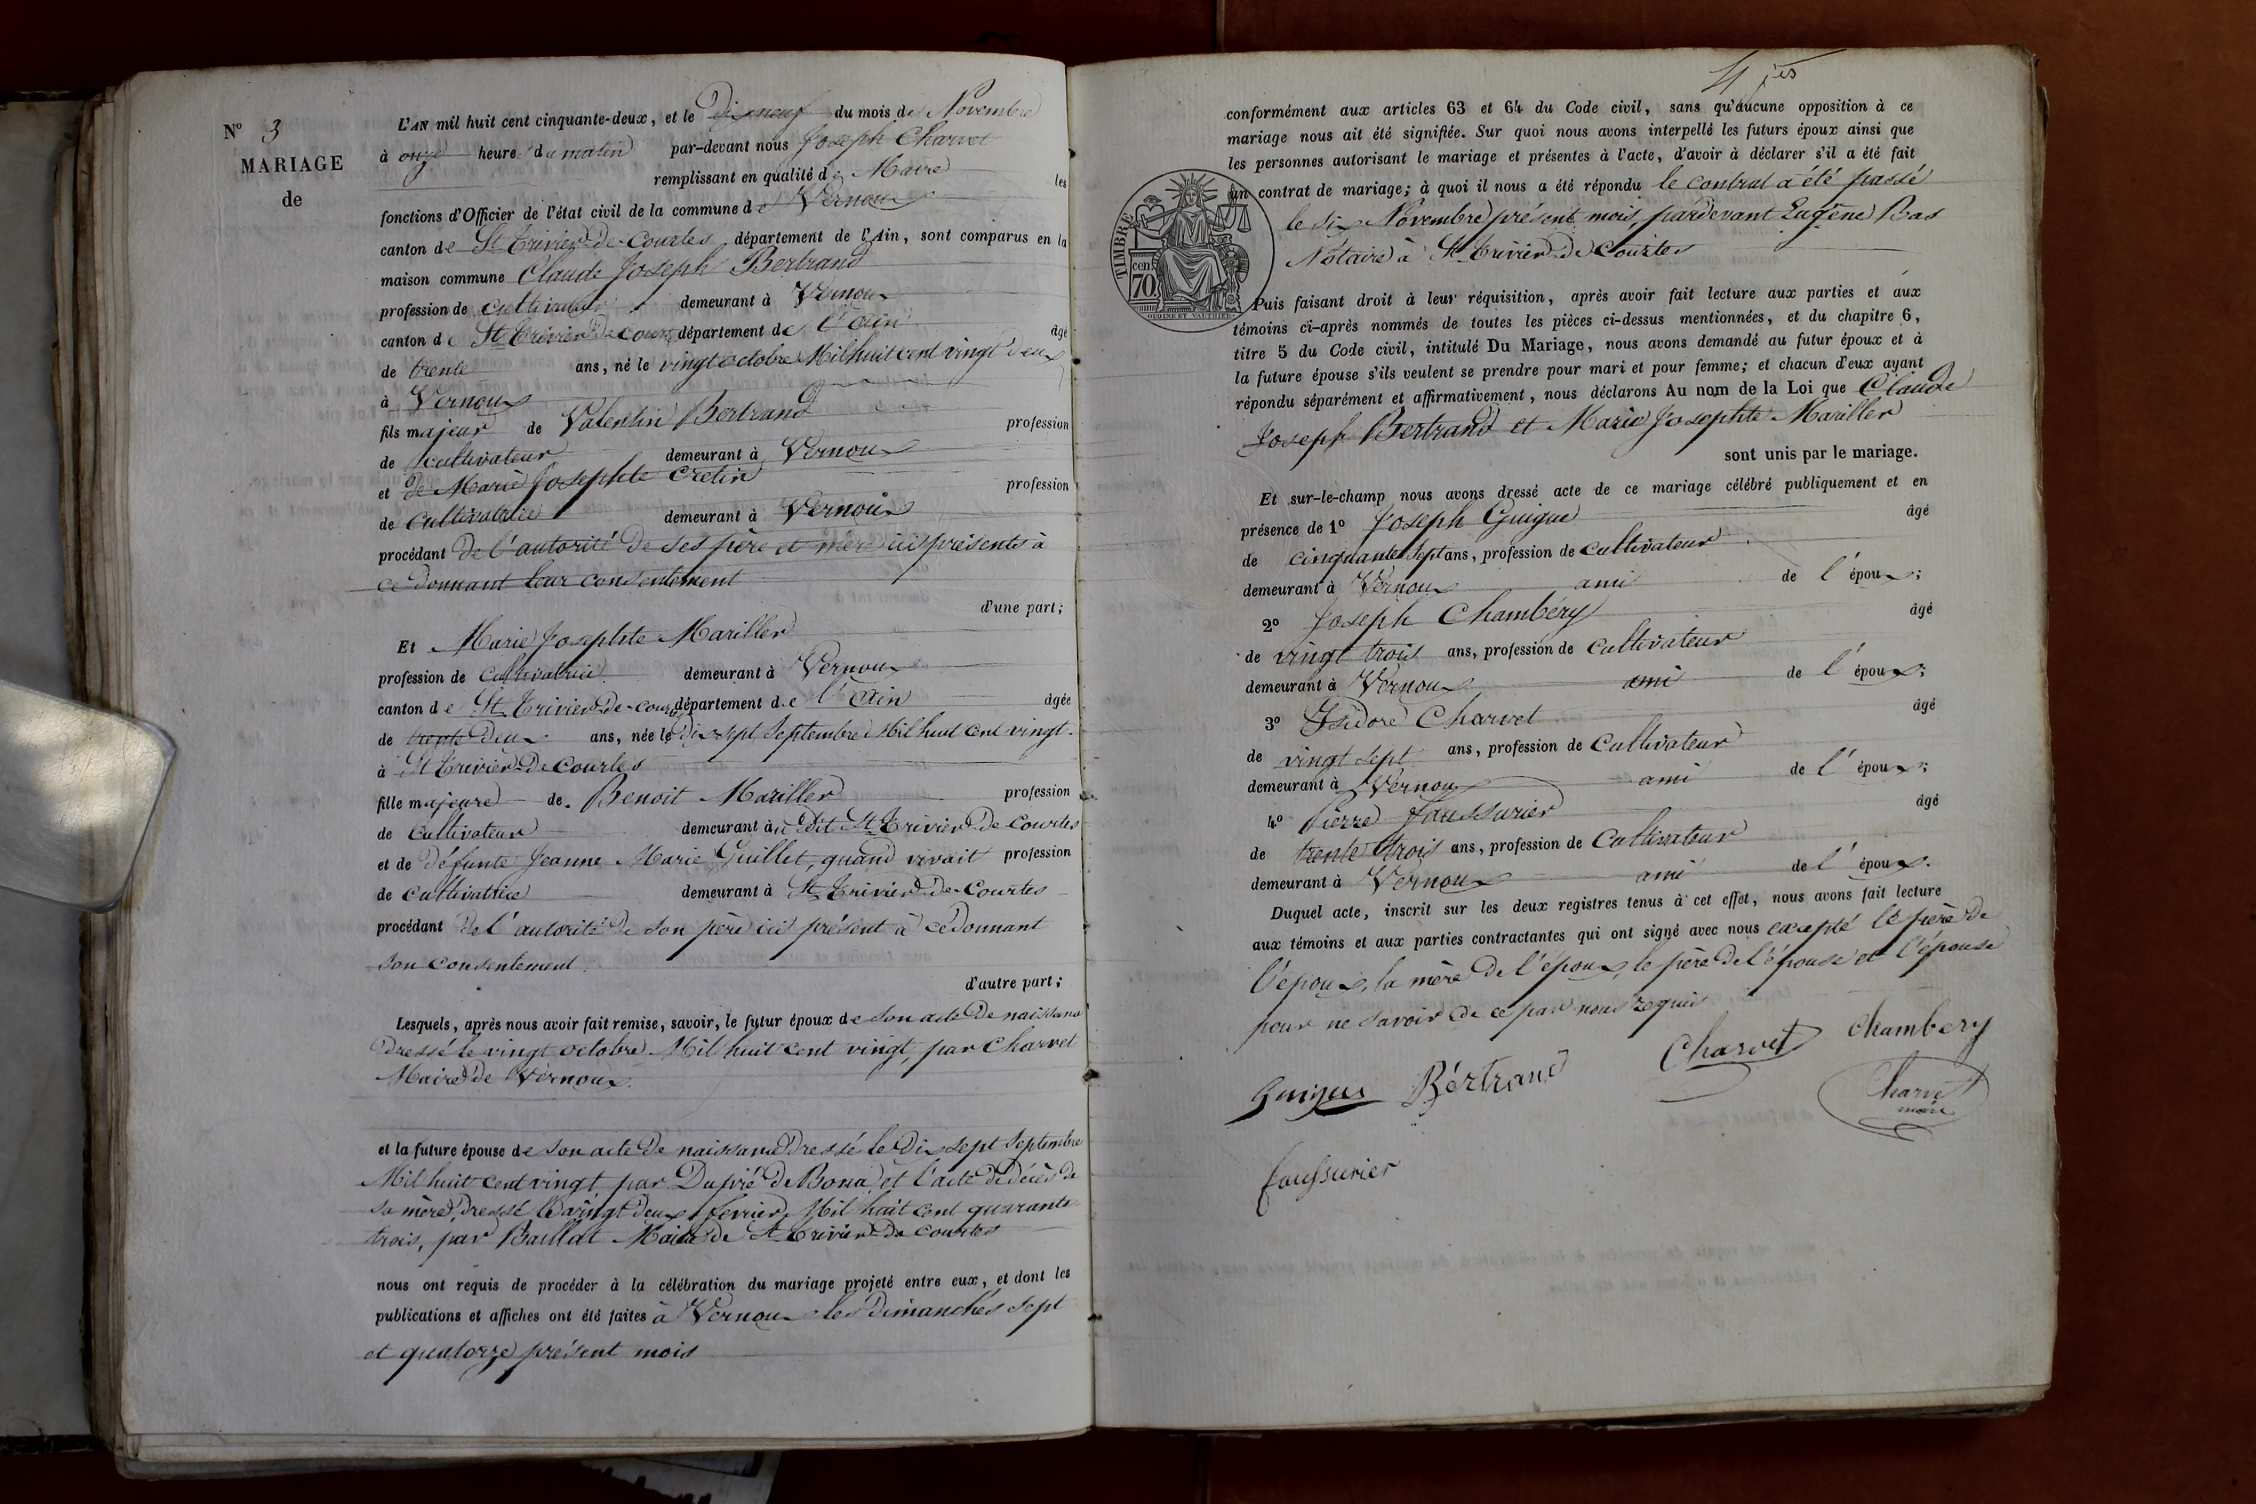 Nº 3
MARIAGE
de
L'AN mil huit cent cinquante-deux, et le Dix neuf du mois de Novembre
à onze heure du matin par-devant nous Joseph Charvet
remplissant en qualité de Maire les
fonctions d'Officier de l'état civil de la commune de Vernoux
canton de St Trivier-de-Courtes département de l'Ain, sont comparus en la
maison commune Claude Joseph Bertrand
profession de cultivateur demeurant à Vernoux
canton de St Trivier de Cour département de l'Ain âgé
de trente ans, né le vingt octobre Mil huit cent vingt deux
à Vernoux
fils majeur de Valentin Bertrand profession
de cultivateur demeurant à Vernoux
et de Marie Josephte Cretin profession
de Cultivatrice demeurant à Vernoux
procédant de l'autorité de ses père et mère ici présents à
ce donnant leur consentement
d'une part;
Et Marie Josephte Mariller
profession de Cultivatrice demeurant à Vernoux
canton de St Trivier-de-cour département de l'Ain âgée
de trente deux ans, née le Dix sept Septembre Mil huit cent vingt
à St Trivier De Courtes
fille majeure de Benoit Mariller profession
de Cultivateur demeurant à dit St Trivier De Courtes
et de défunte Jeanne Marie Guillet, quand vivait profession
de cultivatrice demeurant à St Trivier-de-Courtes
procédant de l'autorité de son père ici présent à ce donnant
son consentement
d'autre part;
Lesquels, après nous avoir fait remise, savoir, le futur époux de son acte De naissance
Dressé le vingt octobre Mil huit cent vingt, par Charvet
Maire de Vernoux
et la future épouse de son acte De naissance dressé le Dix sept Septembre
Mil huit cent vingt par Dupré De Bona, et l'acte de décès de
sa mère, dressé le vingt deux février Mil huit cent quarante
trois, par Baillat Maire de St Trivier de Courtes
nous ont requis de procéder à la célébration du mariage projeté entre eux, et dont les
publications et affiches ont été faites à Vernoux les Dimanches sept
et quatorze présent mois
4 jes
conformément aux articles 63 et 64 du Code civil, sans qu'aucune opposition à ce
mariage nous ait été signifiée. Sur quoi nous avons interpellé les futurs époux ainsi que
les personnes autorisant le mariage et présentes à l'acte, d'avoir à déclarer s'il a été fait
un contrat de mariage; à quoi il nous a été répondu le contrat a été passé
le six Novembre présent mois, pardevant Eugène Bas
Notaire à St Trivier de Courtes
TIMBRE
cens
70
Puis faisant droit à leur réquisition, après avoir fait lecture aux parties et aux
témoins ci-après nommés de toutes les pièces ci-dessus mentionnées, et du chapitre 6,
titre 5 du Code civil, intitulé Du Mariage, nous avons demandé au futur époux et à
la future épouse s'ils veulent se prendre pour mari et pour femme; et chacun d'eux ayant
répondu séparément et affirmativement, nous déclarons Au nom de la Loi que Claude
Joseph Bertrand et Marie Josephte Mariller
sont unis par le mariage.
Et sur-le-champ nous avons dressé acte de ce mariage célébré publiquement et en
présence de 1º Joseph Guigue âgé
de cinquante sept ans, profession de cultivateur
demeurant à Vernoux ami de l'époux;
2º Joseph Chambéry âgé
de vingt trois ans, profession de cultivateur
demeurant à Vernoux ami de l'époux;
3º Isidore Charvet âgé
de vingt sept ans, profession de Cultivateur
demeurant à Vernoux ami de l'époux;
4º Pierre Faussurier âgé
de trente trois ans, profession de Cultivateur
demeurant à Vernoux ami de l'époux.
Duquel acte, inscrit sur les deux registres tenus à cet effet, nous avons fait lecture
aux témoins et aux parties contractantes qui ont signé avec nous excepté le père de
l'époux, la mère de l'époux, le père De l'épouse et l'épouse
pour ne savoir de ce par nous requis
Guigue Bértrand Charvet Chambery
Charvet
maire
Faussurier